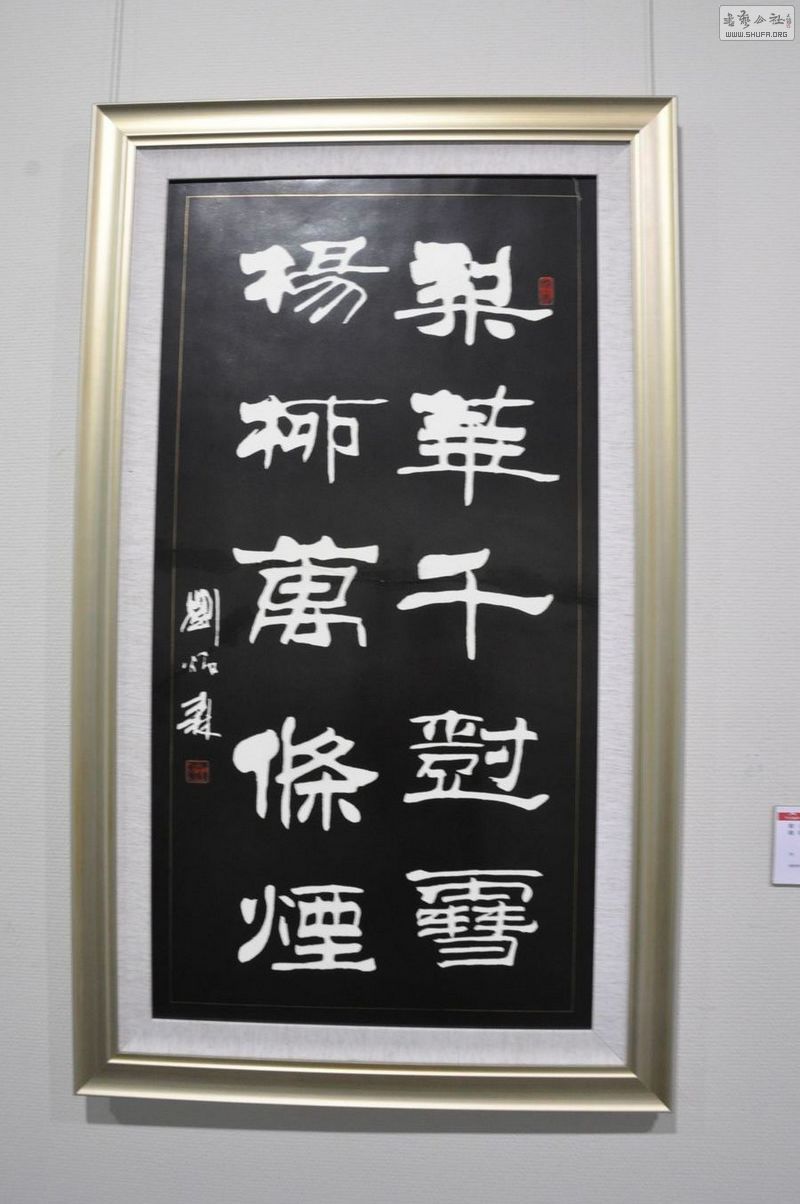 梨華千樹雪
楊柳萬條煙
劉炳森
書藝公社
WWW.SHUFA.ORG